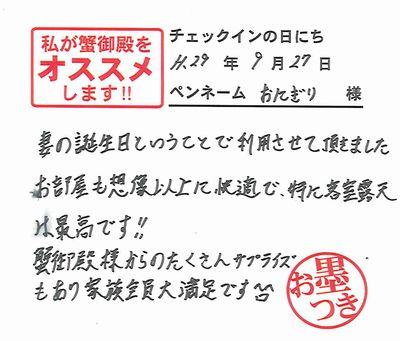 私が蟹御殿を
オススメ
します!!
チェックインの日にち
H.29 年 9 月 27 日
ペンネーム おにぎり 様
妻の誕生日ということで利用させて頂きました
お部屋も想像以上に快適で、特に客室露天
は最高です!!
蟹御殿様からのたくさんサプライズ
もあり家族全員大満足です
お墨つき